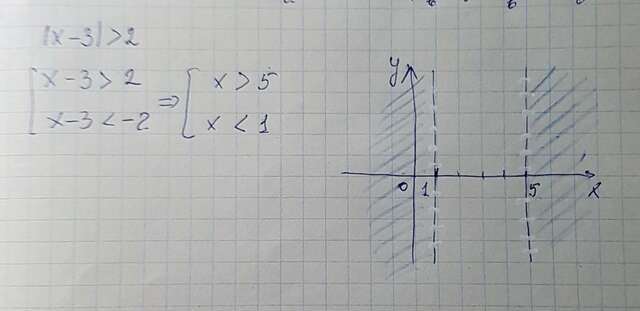 |x-3|>2
[ x-3>2
x-3<-2 => [ x>5
x<1
y
0 1 5 x